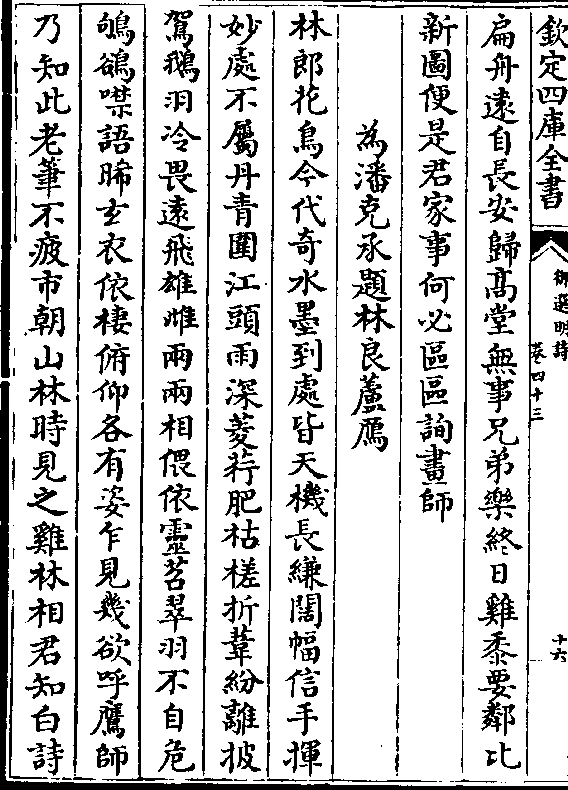 欽定四庫全書
御選明詩
卷四十三
十六
扁舟遠自長安歸髙堂無事兄弟樂終日雞黍要鄰比
新圖便是君家事何必區區詢畫師
為潘克承題林良蘆鴈
林郎花鳥今代奇水墨到處皆天機長縑闊幅信手揮
妙處不屬丹青圍江頭雨深菱荇肥枯槎折葦紛離披
鴐鵝羽冷畏遠飛雄雌兩兩相偎依靈苕翠羽不自危
鴝鵒噤語晞玄衣依棲俯仰各有姿乍見幾欲呼鷹師
乃知此老筆不疲市朝山林時見之雞林相君知白詩